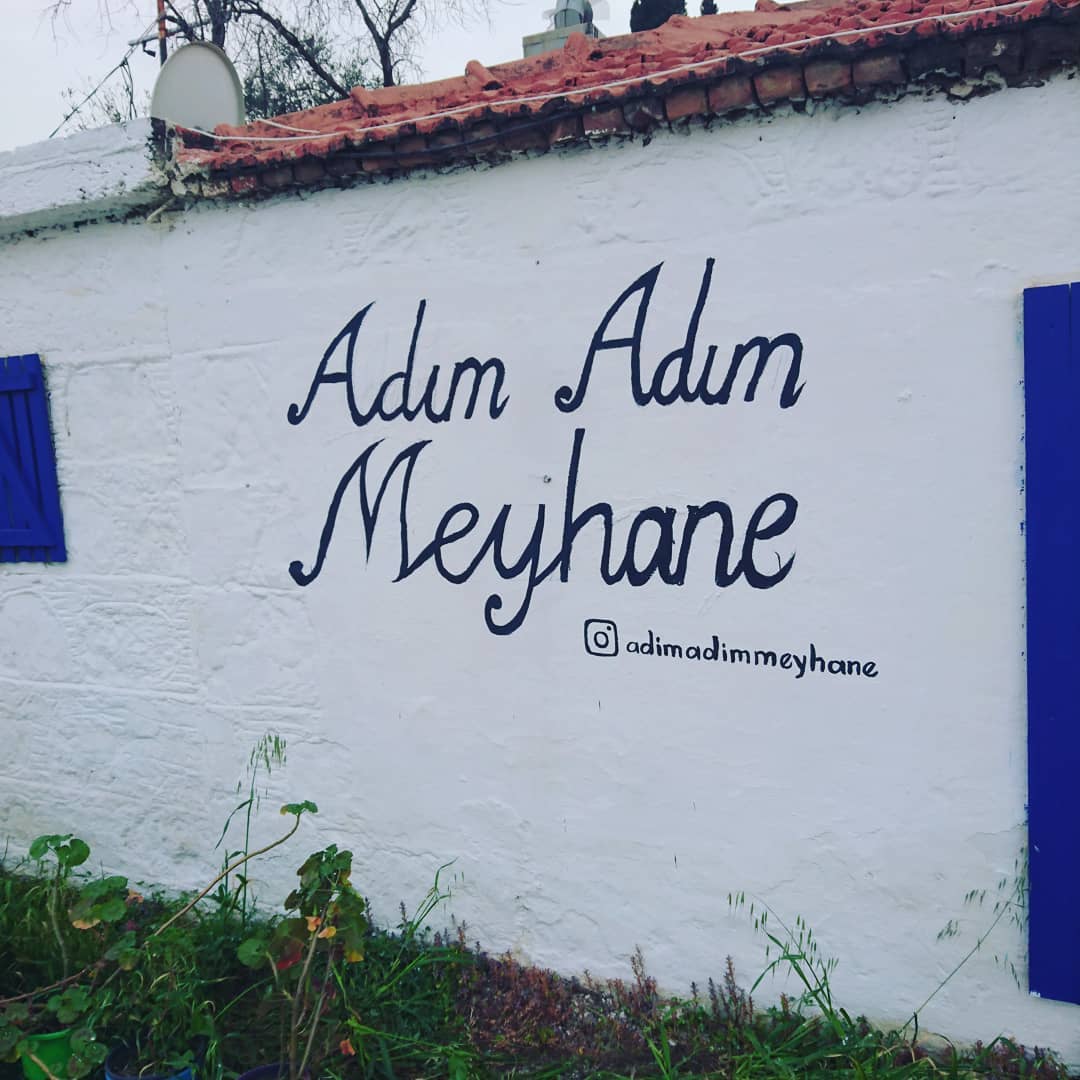 Adım Adım
Meyhane
adimadimmeyhane